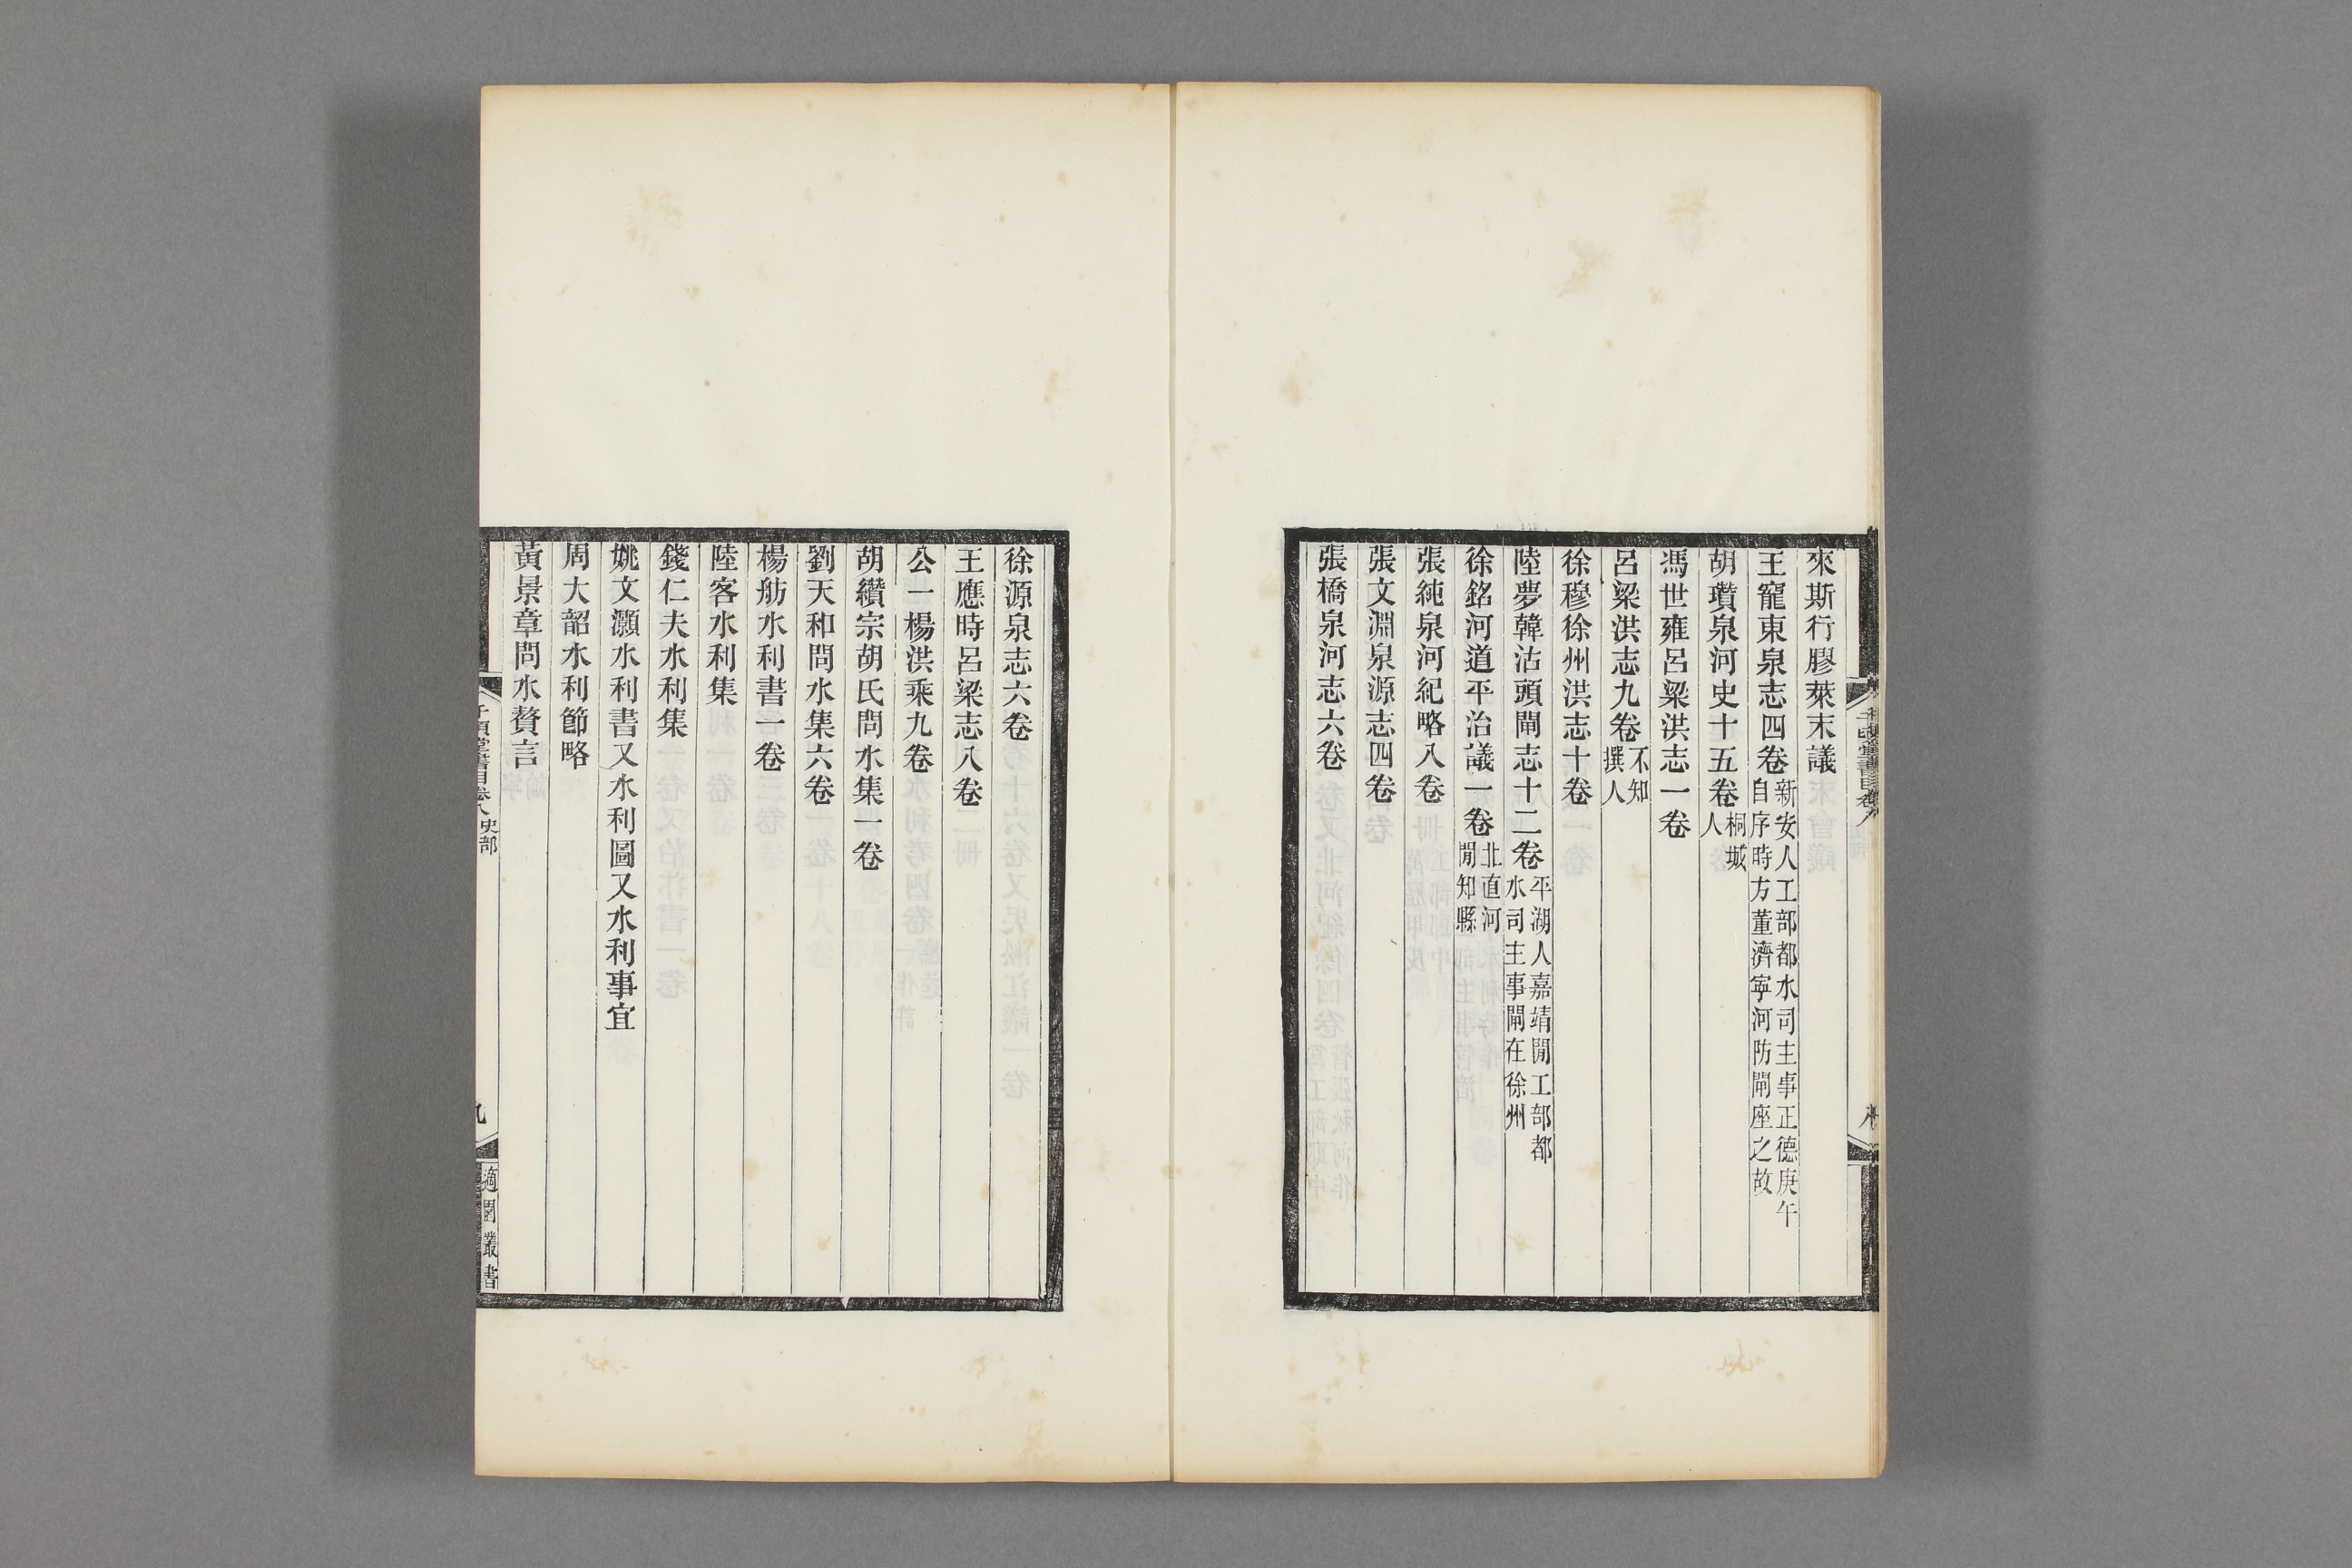 來斯行膠萊末議
王寵東泉志四卷新安人工部都水司主事正德庚午自序時方董濟寧河防閘座之故
胡瓚泉河史十五卷桐城人
馮世雍呂梁洪志一卷
呂梁洪志九卷不知撰人
徐穆徐州洪志十卷
陸夢韓沽頭閘志十二卷平湖人嘉靖閒工部都水司主事閘在徐州
徐銘河道平治議一卷北直河閒知縣
張純泉河紀略八卷
張文淵泉源志四卷
張橋泉河志六卷
徐源泉志六卷
王應時呂梁志八卷
公一楊洪乘九卷
胡纘宗胡氏問水集一卷
劉天和問水集六卷
楊舫水利書一卷
陸客水利集
錢仁夫水利集
姚文灝水利書又水利圖又水利事宜
周大韶水利節略
黃景章問水贅言
千頃堂書目卷八史部
九
適園叢書